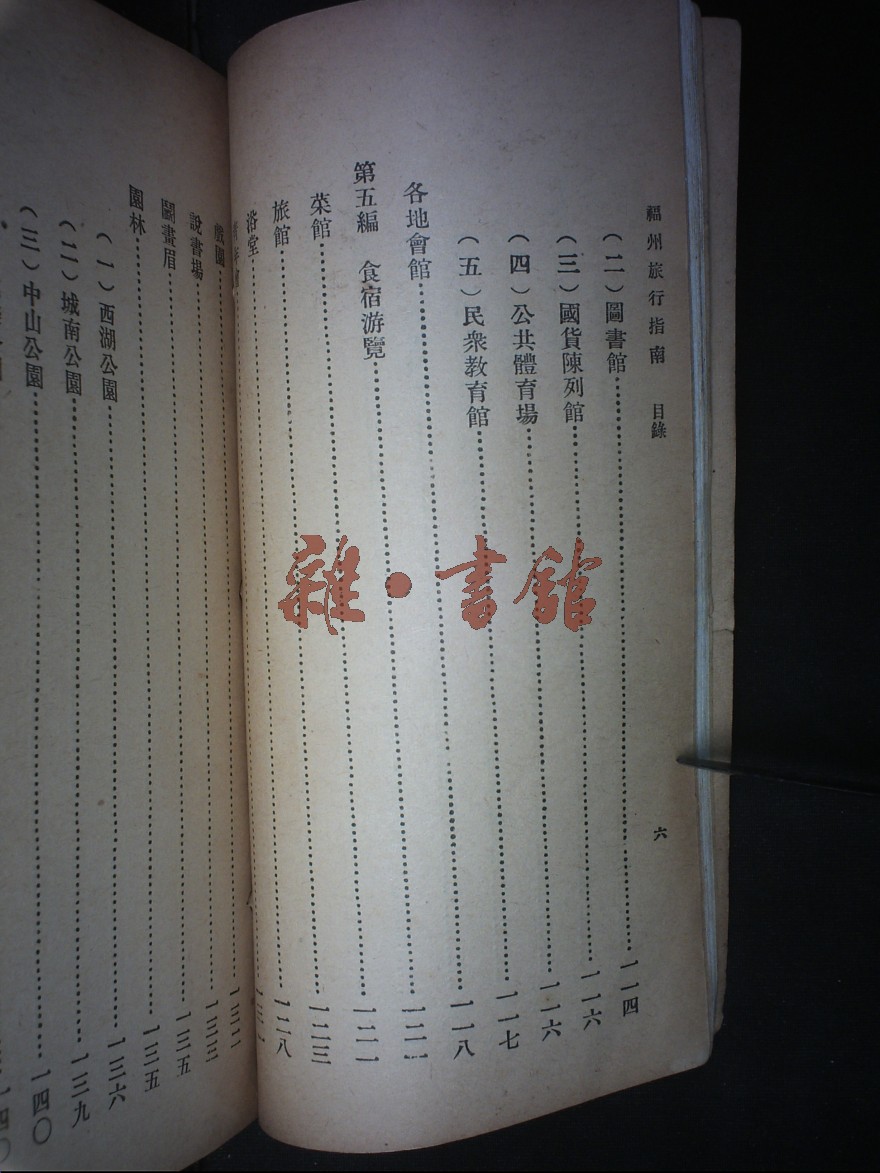 福州旅行指南 目錄 六
(二)圖書館 一一四
(三)國貨陳列館 一一六
(四)公共體育場 一一六
(五)民衆教育館 一一七
各地會館 一一八
第五編 食宿游覽
菜館 一二一
旅館 一二三
浴堂 一二八
戲園
說書場 一三三
鬬畫眉 一三五
園林 一三五
(一)西湖公園 一三六
(二)城南公園 一三九
(三)中山公園 一四〇
雜·書館